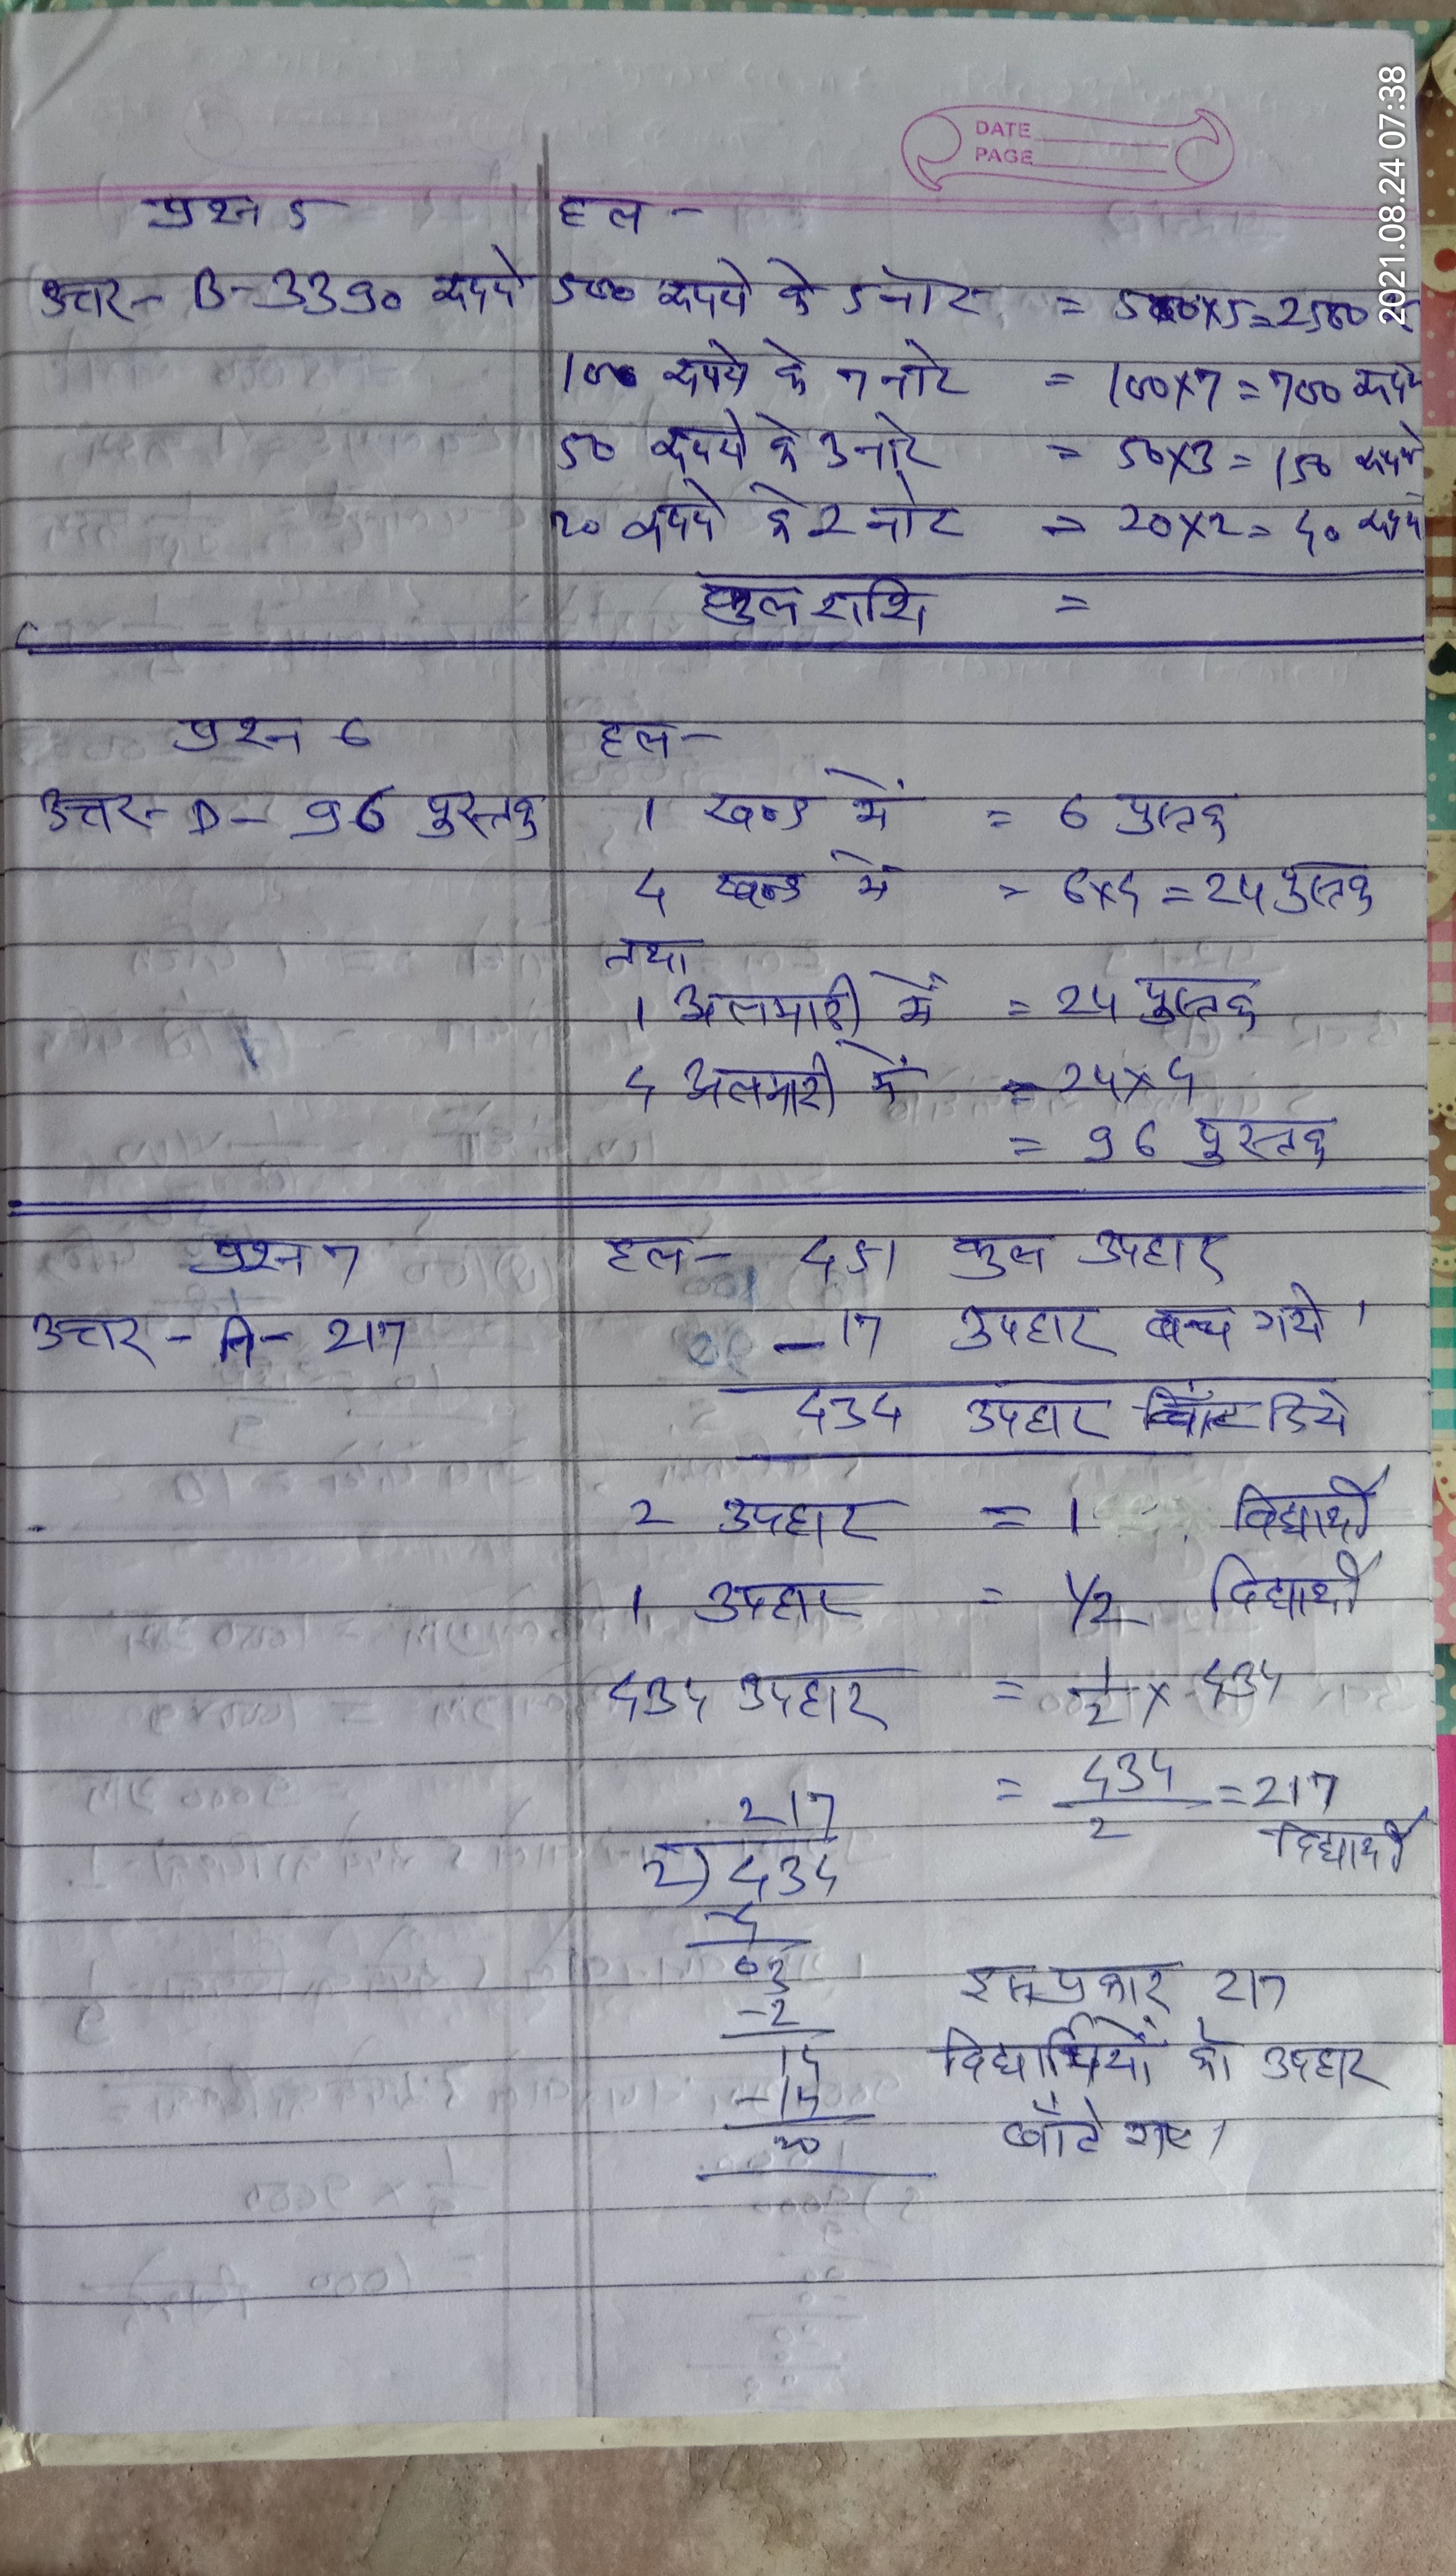 DATE
PAGE
2021.08.24 07:38
प्रश्न 5
हल-
उत्तर- B-3390 रुपये
500 रुपये के 5 नोट = 500×5=2500
100 रुपये के 7 नोट = 100×7=700 रुपये
50 रुपये के 3 नोट = 50×3=150 रुपये
20 रुपये के 2 नोट = 20×2=40 रुपये
कुल राशि =
प्रश्न 6
हल-
उत्तर- D- 96 पुस्तक
1 खण्ड में = 6 पुस्तक
4 खण्ड में = 6×4=24 पुस्तक
तथा
1 अलमारी में = 24 पुस्तक
4 अलमारी में = 24×4
= 96 पुस्तक
प्रश्न 7
हल- 451 कुल उपहार
उत्तर- A- 217
-17 उपहार बच गये।
434 उपहार बाँट दिये
2 उपहार = 1 विद्यार्थी
1 उपहार = 1/2 विद्यार्थी
434 उपहार = 1/2 × 434
= 434/2 = 217
विद्यार्थी
217
2)434
-4
03
-2
14
-14
00
इस प्रकार 217
विद्यार्थियों को उपहार
बाँटे गए।